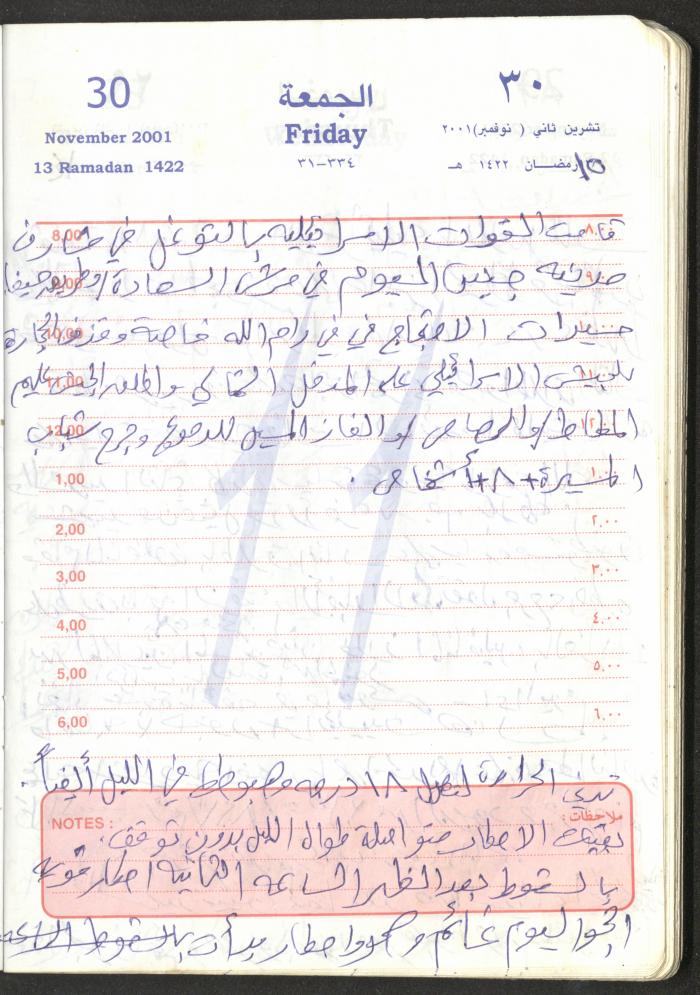 30
الجمعة
٣٠
November 2001
Friday
تشرين ثاني ( نوفمبر) ٢٠٠١
13 Ramadan 1422
٣٣٤-٣١
١٥ رمضان ١٤٢٢ هـ
8,00 ٨.٠٠
قامت القوات الاسرائيلية بالتوغل في مشارف
9,00 ٩
مدينة جنين اليوم في مرش السعادة
10,00
مسيرات الاحتجاج في في رام الله خاصة وقذف الحجارة
11,00
للجيش الاسرائيلي على المدخل الشمالي واطلق الجيش عليهم
12,00 ١٢
المطاط والرصاص والغاز المسيل للدموع وجرح شباب
1,00 ١.٠٠
المسيرة ٨ أشخاص .
2,00 ٢.٠٠
3,00 ٣.٠٠
4,00 ٤.٠٠
5,00 ٥.٠٠
6,00 ٦.٠٠
11
تدني الحرارة لتصل ١٨ درجة وهبوطها في الليل أيضاً .
NOTES : ملاحظات :
بقيت الامطار متواصلة طوال الليل بدون توقف .
بالسقوط بعد الظهر الساعة الثانية امطار قوية
الجو اليوم غائم وامطار بدأت بالسقوط